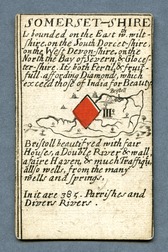 SOMERSET-SHIRE
Is bounded on the East wth. wilt-
shire, on the South Dorcet-shire,
on the West Devon-shire, on the
North the Bay of Severn, & Gloce-
ter-shire. It's both Fertil, & fruit-
full affording Diamond's, which
exceed those of India for Beauty
Bristoll
III
Bristoll beautifyed with fair
Houses, a Double River & wall,
a faire Haven, & much Traffique,
also wells, from the many
wells and Springs.
In it are 385. Parrishes and
Divers Rivers.